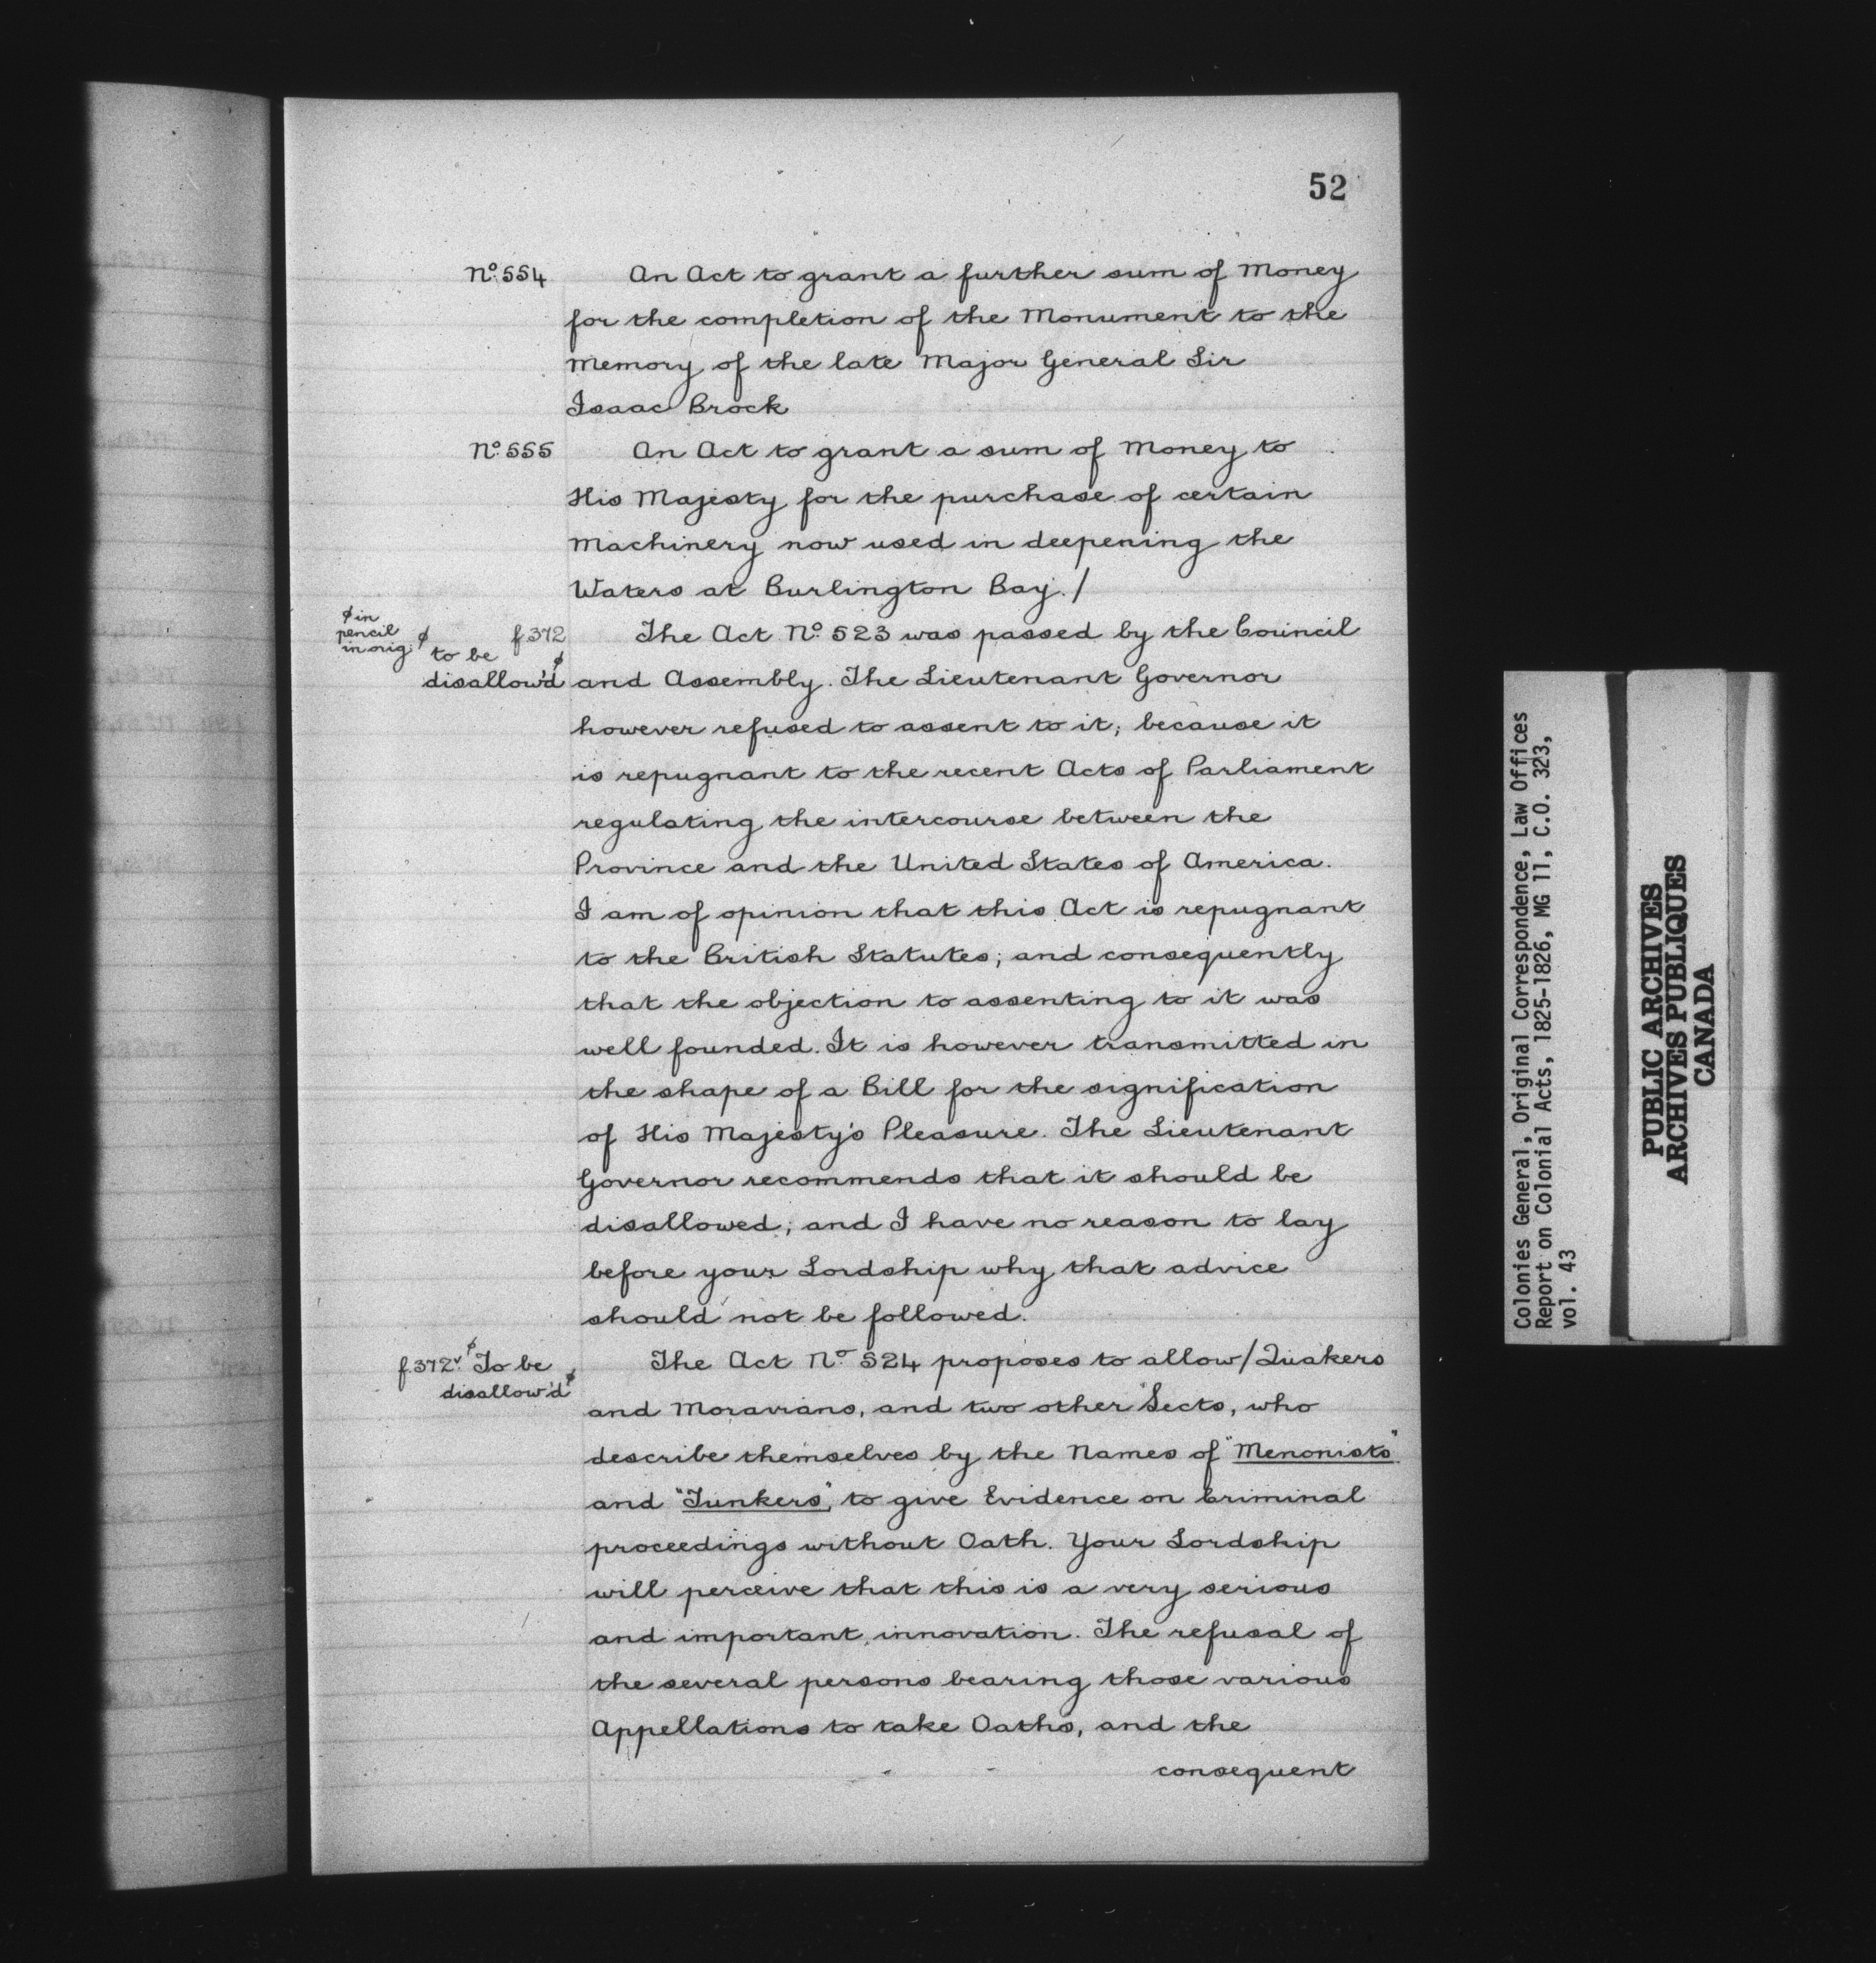 52
Nº 554 An Act to grant a further sum of Money
for the completion of the Monument to the
Memory of the late Major General Sir
Isaac Brock
Nº 555 An Act to grant a sum of Money to
His Majesty for the purchase of certain
Machinery now used in deepening the
Waters at Burlington Bay./
ϕ in
pencil
in orig.
ϕ to be
disallow'd ϕ
f.372 The Act Nº 523 was passed by the Council
and Assembly. The Lieutenant Governor
however refused to assent to it; because it
is repugnant to the recent Acts of Parliament
regulating the intercourse between the
Province and the United States of America.
I am of opinion that this Act is repugnant
to the British Statutes; and consequently
that the objection to assenting to it was
well founded. It is however transmitted in
the shape of a Bill for the signification
of His Majesty's Pleasure. The Lieutenant
Governor recommends that it should be
disallowed; and I have no reason to lay
before your Lordship why that advice
should not be followed.
f.372v. ϕ To be
disallow'd ϕ
The Act Nº 524 proposes to allow/Quakers
and Moravians, and two other Sects, who
describe themselves by the Names of "Menonists"
and "Tunkers", to give Evidence on Criminal
proceedings without Oath. Your Lordship
will perceive that this is a very serious
and important innovation. The refusal of
the several persons bearing those various
Appellations to take Oaths, and the
consequent
Colonies General, Original Correspondence, Law Offices
Report on Colonial Acts, 1825-1826, MG 11, C.O. 323,
vol. 43
PUBLIC ARCHIVES
ARCHIVES PUBLIQUES
CANADA